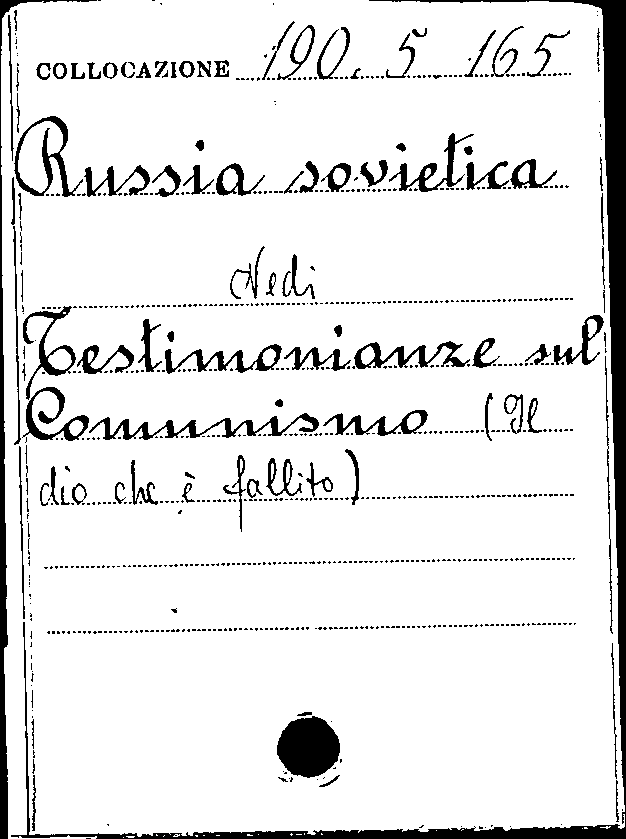 COLLOCAZIONE 190. 5. 165
Russia sovietica
Vedi
Testimonianze sul
Comunismo (Il
dio che è fallito)